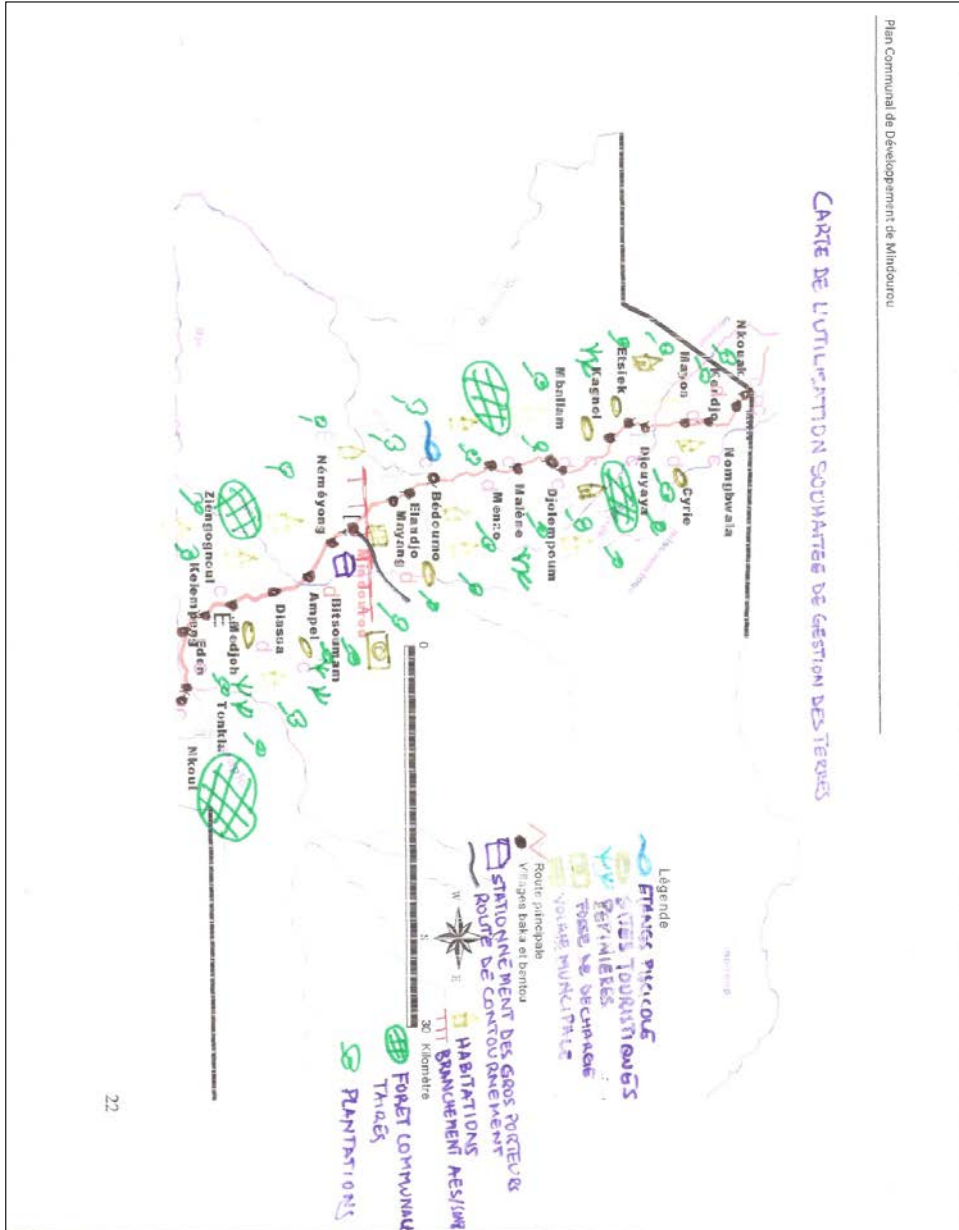 Plan Communal de Développement de Mindourou
CARTE DE L'UTILISATION SOUHAITEE DE GESTION DES TERRES
Nkouak
Kendjo
Mayon
Nomgbwala
Cyrie
Etsiek
Kagnol
Djouyaya
Mballam
Djolempoum
Malène
Menzo
Bédoumo
Elandjo
Mayang
Mindourou
Néméyong
Bitsoumam
Ampel
Diassa
Ziengognoul
Medjoh
Kelempeng
Eden
Tonkla
Nkoul
Légende
ETANGS PISCICOLE
SITES TOURISTIQUES
PEPINIERES
FOSSE DE DECHARGE
VOIRIE MUNICIPALE
Route principale
Villages baka et bantou
STATIONNEMENT DES GROS PORTEURS
ROUTE DE CONTOURNEMENT
W
E
S
HABITATIONS
BRANCHEMENT AES/
FORET COMMUNAU
TAIRES
PLANTATIONS
0
30 Kilomètre
22